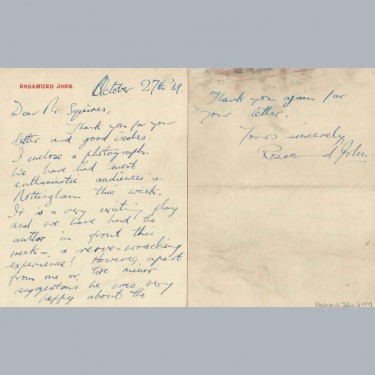 ROSAMUND JOHN.
October 27th '49.
Dear Mr Squires,
Thank you for your
letter and good wishes.
I enclose a photograph.
We have had most
enthusiastic audiences in
Nottingham this week.
It is a very exciting play
and we have had the
author in front this
week – a nerve-wracking
experience! However, apart
from one or two minor
suggestions he was very
happy about the
Thank you again for
your letter.
Yours sincerely
Rosamund John.